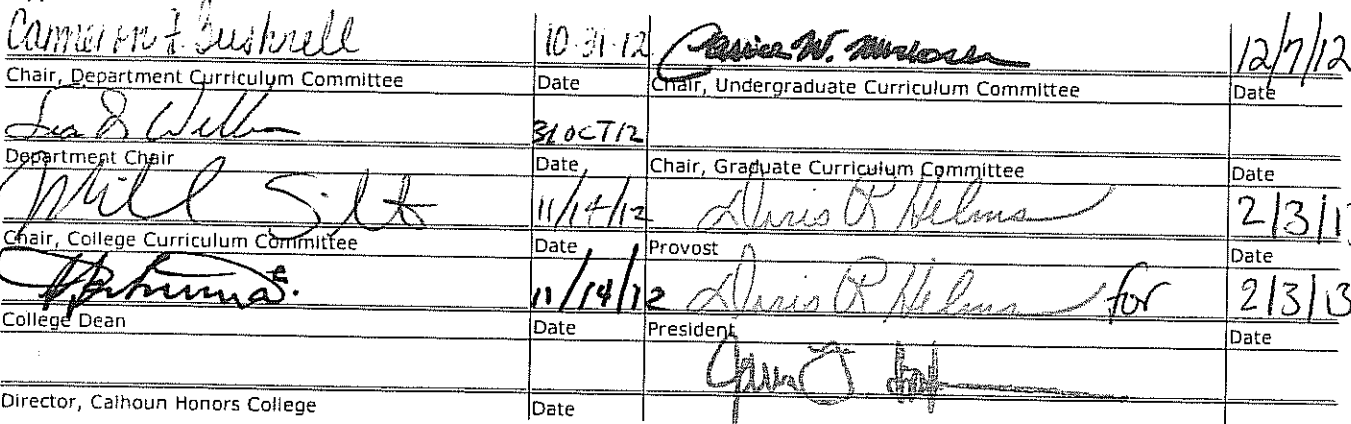 Cameron F. Bushnell 10-31-12 Janice W. 12/7/12
Chair, Department Curriculum Committee Date Chair, Undergraduate Curriculum Committee Date
31 OCT 12
Department Chair Date Chair, Graduate Curriculum Committee Date
11/14/12 Doris R Helms 2/3/13
Chair, College Curriculum Committee Date Provost Date
11/14/12 Doris R Helms for 2/3/13
College Dean Date President Date
Director, Calhoun Honors College Date